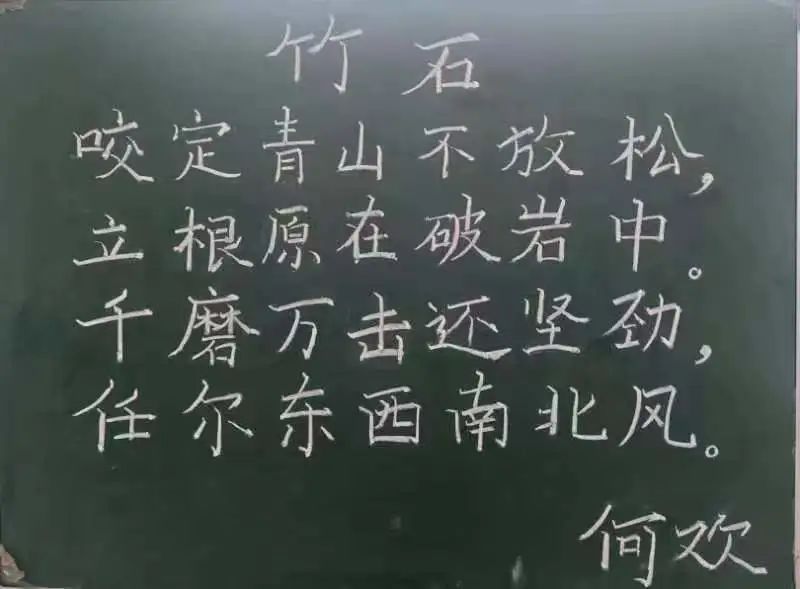 竹石
咬定青山不放松，
立根原在破岩中。
千磨万击还坚劲，
任尔东西南北风。
何欢